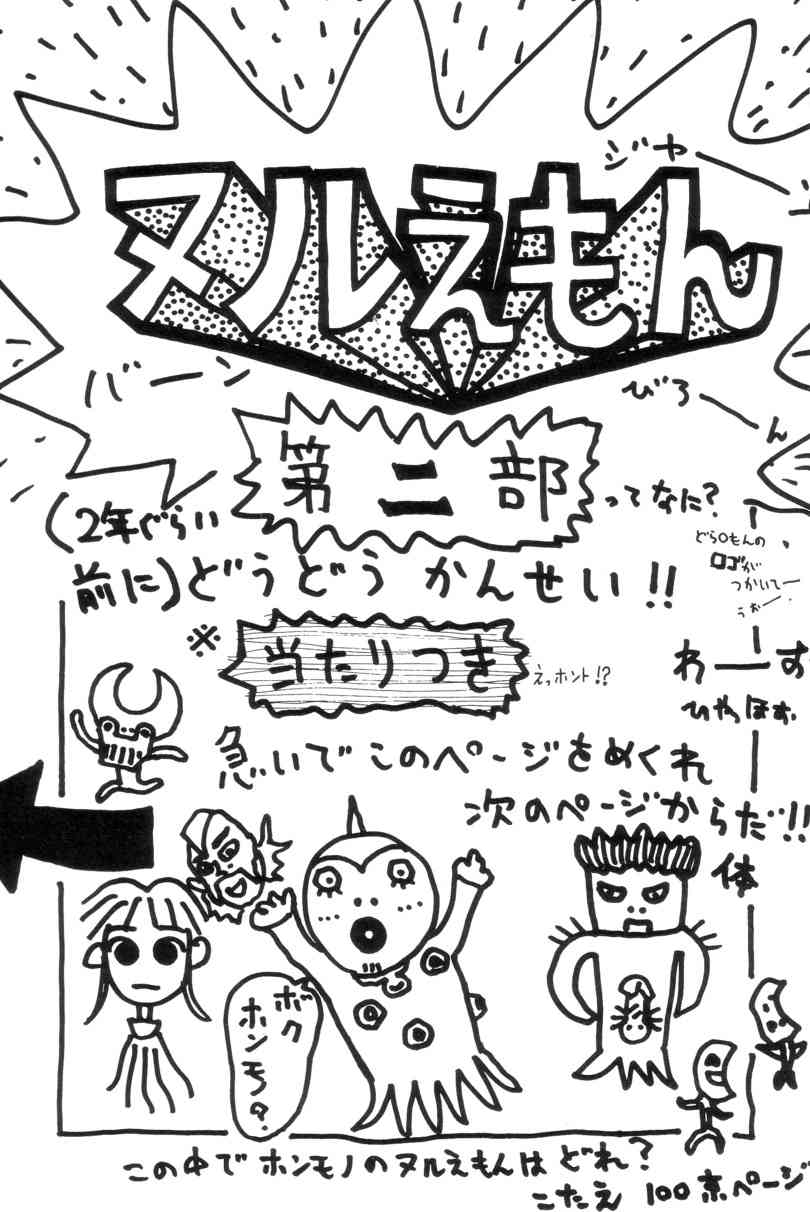 ジャーン
ヌルえもん
バーン
びろーん
第二部
ってなに?
(2年ぐらい
前に)どうどう かんせい!!
どら○もんの
ロゴが
つかいてー
うぉー
※当たりつき
えっホント!?
わーす
ひゃっほぅ
急いでこのページをめくれ
次のページからだ!!
体
ボク
ホンモノ?
この中でホンモノのヌルえもんはどれ?
こたえ 100京ページ